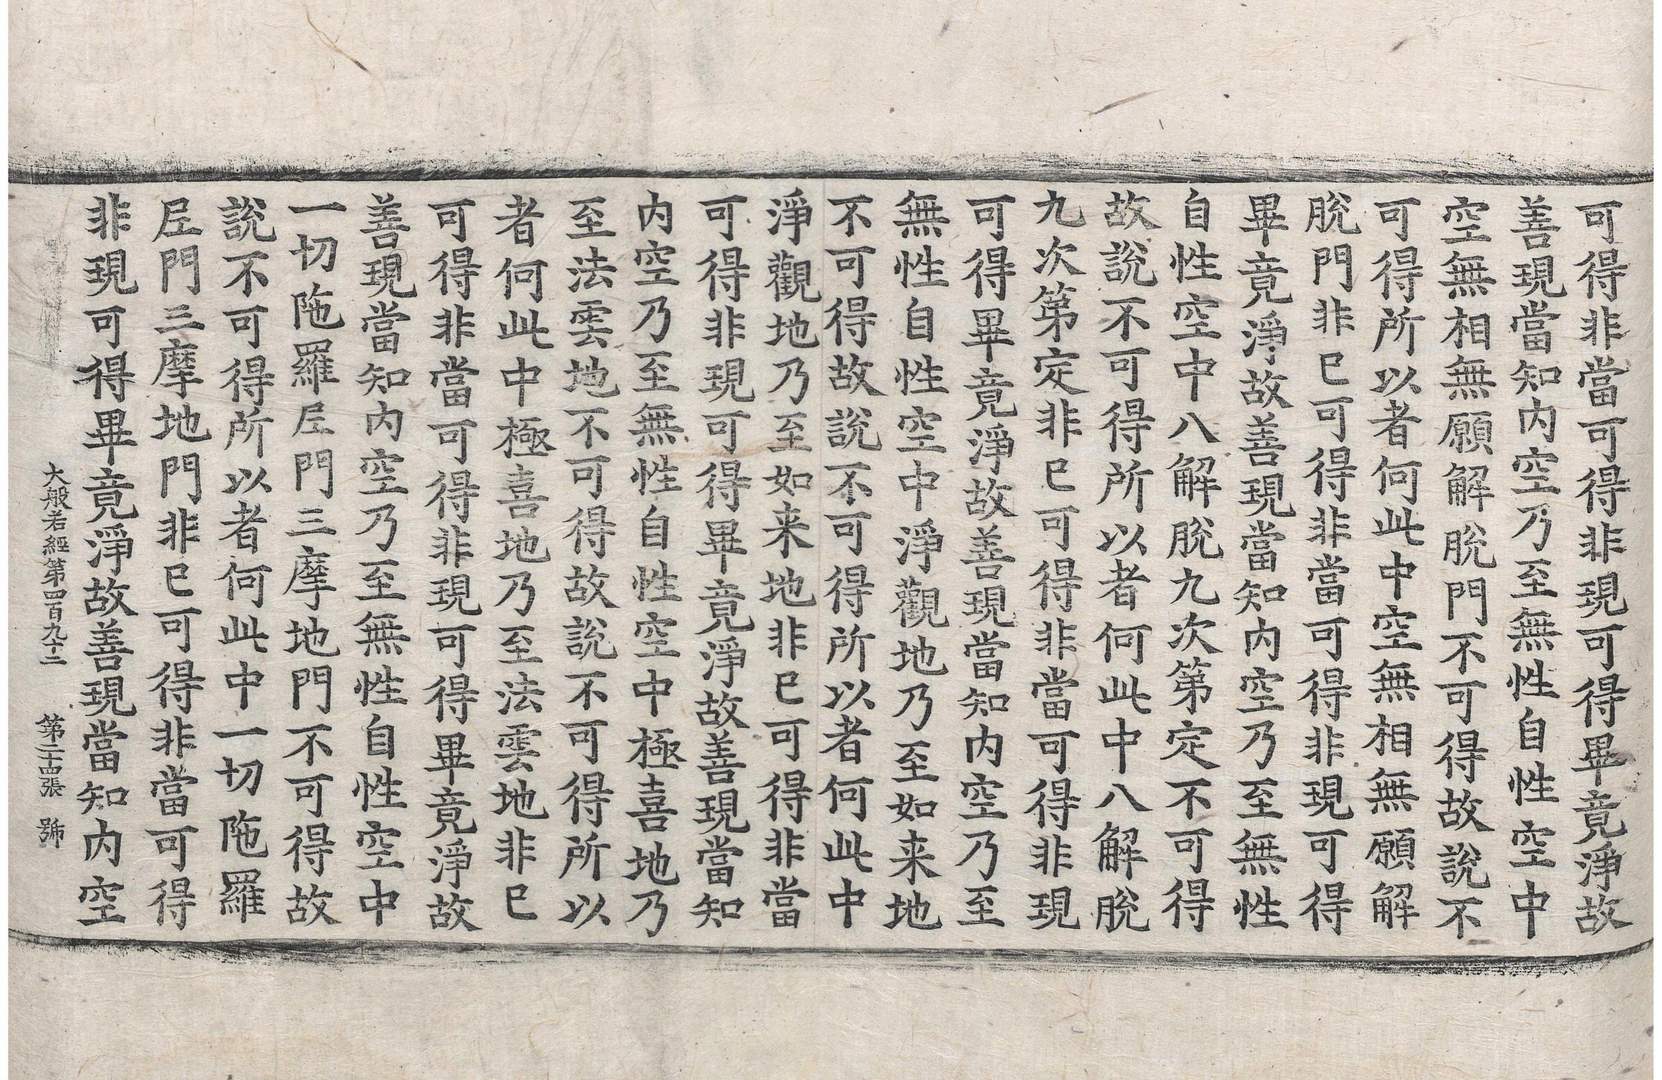 可得非當可得非現可得畢竟淨故
善現當知內空乃至無性自性空中
空無相無願解脫門不可得故說不
可得所以者何此中空無相無願解
脫門非已可得非當可得非現可得
畢竟淨故善現當知內空乃至無性
自性空中八解脫九次第定不可得
故說不可得所以者何此中八解脫
九次第定非已可得非當可得非現
可得畢竟淨故善現當知內空乃至
無性自性空中淨觀地乃至如来地
不可得故說不可得所以者何此中
淨觀地乃至如来地非已可得非當
可得非現可得畢竟淨故善現當知
內空乃至無性自性空中極喜地乃
至法雲地不可得故說不可得所以
者何此中極喜地乃至法雲地非已
可得非當可得非現可得畢竟淨故
善現當知內空乃至無性自性空中
一切陁羅𡰱門三摩地門不可得故
說不可得所以者何此中一切陁羅
𡰱門三摩地門非已可得非當可得
非現可得畢竟淨故善現當知內空
大般若經第四百九十二 第二十四張 號